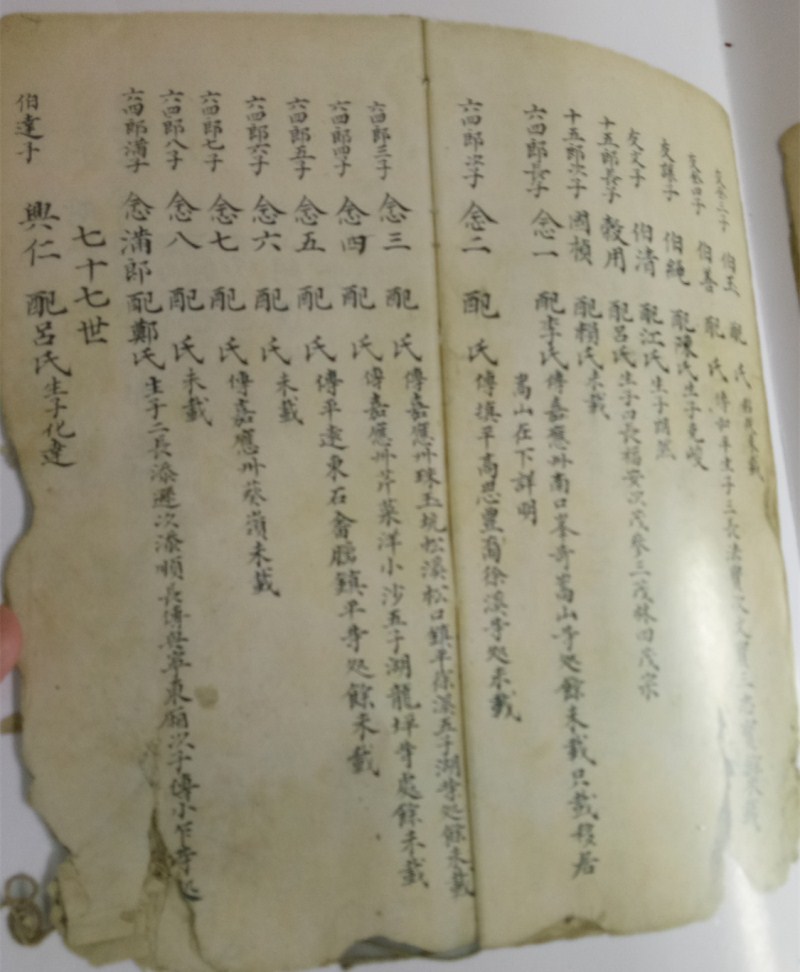 友  子 伯玉 配 氏
友  四子 伯善 配 氏 傳和平生子三長法寶次文寶三
友諒子 伯繩 配陳氏生子克峻
友文子 伯清 配江氏生子
十五郎長子 毅用 配呂氏生子四長福安次茂參三茂林四茂宗
十五郎次子 國楨 配賴氏未載
六四郎長子 念一 配李氏傳嘉應州南口峯奇嵩山寺処餘未載只載移居
嵩山在下詳明
六四郎次子 念二 配 氏傳鎮平高思豐徐溪寺処未載
六四郎三子 念三 配 氏傳嘉應州珠玉坑松溪松口鎮平徐溪五子湖寺処餘未載
六四郎四子 念四 配 氏傳嘉應州芹菜洋小沙五子湖龍坪寺處餘未載
六四郎五子 念五 配 氏傳平遠東石鎮平寺処餘未載
六四郎六子 念六 配 氏未載
六四郎七子 念七 配 氏傳嘉應州葵嶺未載
六四郎八子 念八 配 氏未載
六四郎滿子 念滿郎 配鄭氏生子二長添遜次添順長傳興寧東廂次子傳小乍寺処
七十七世
伯達子 興仁 配呂氏生子化達